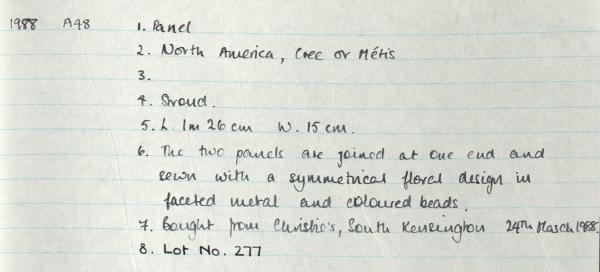 1988 A48 1. Panel
2. North America, Cree or Métis
3.
4. Stroud.
5. L 1m 26 cm W. 15 cm.
6. The two panels are joined at one end and
sewn with a symmetrical floral design in
faceted metal and coloured beads.
7. Bought from Christie's, South Kensington 24TH March 1988
8. Lot No. 277